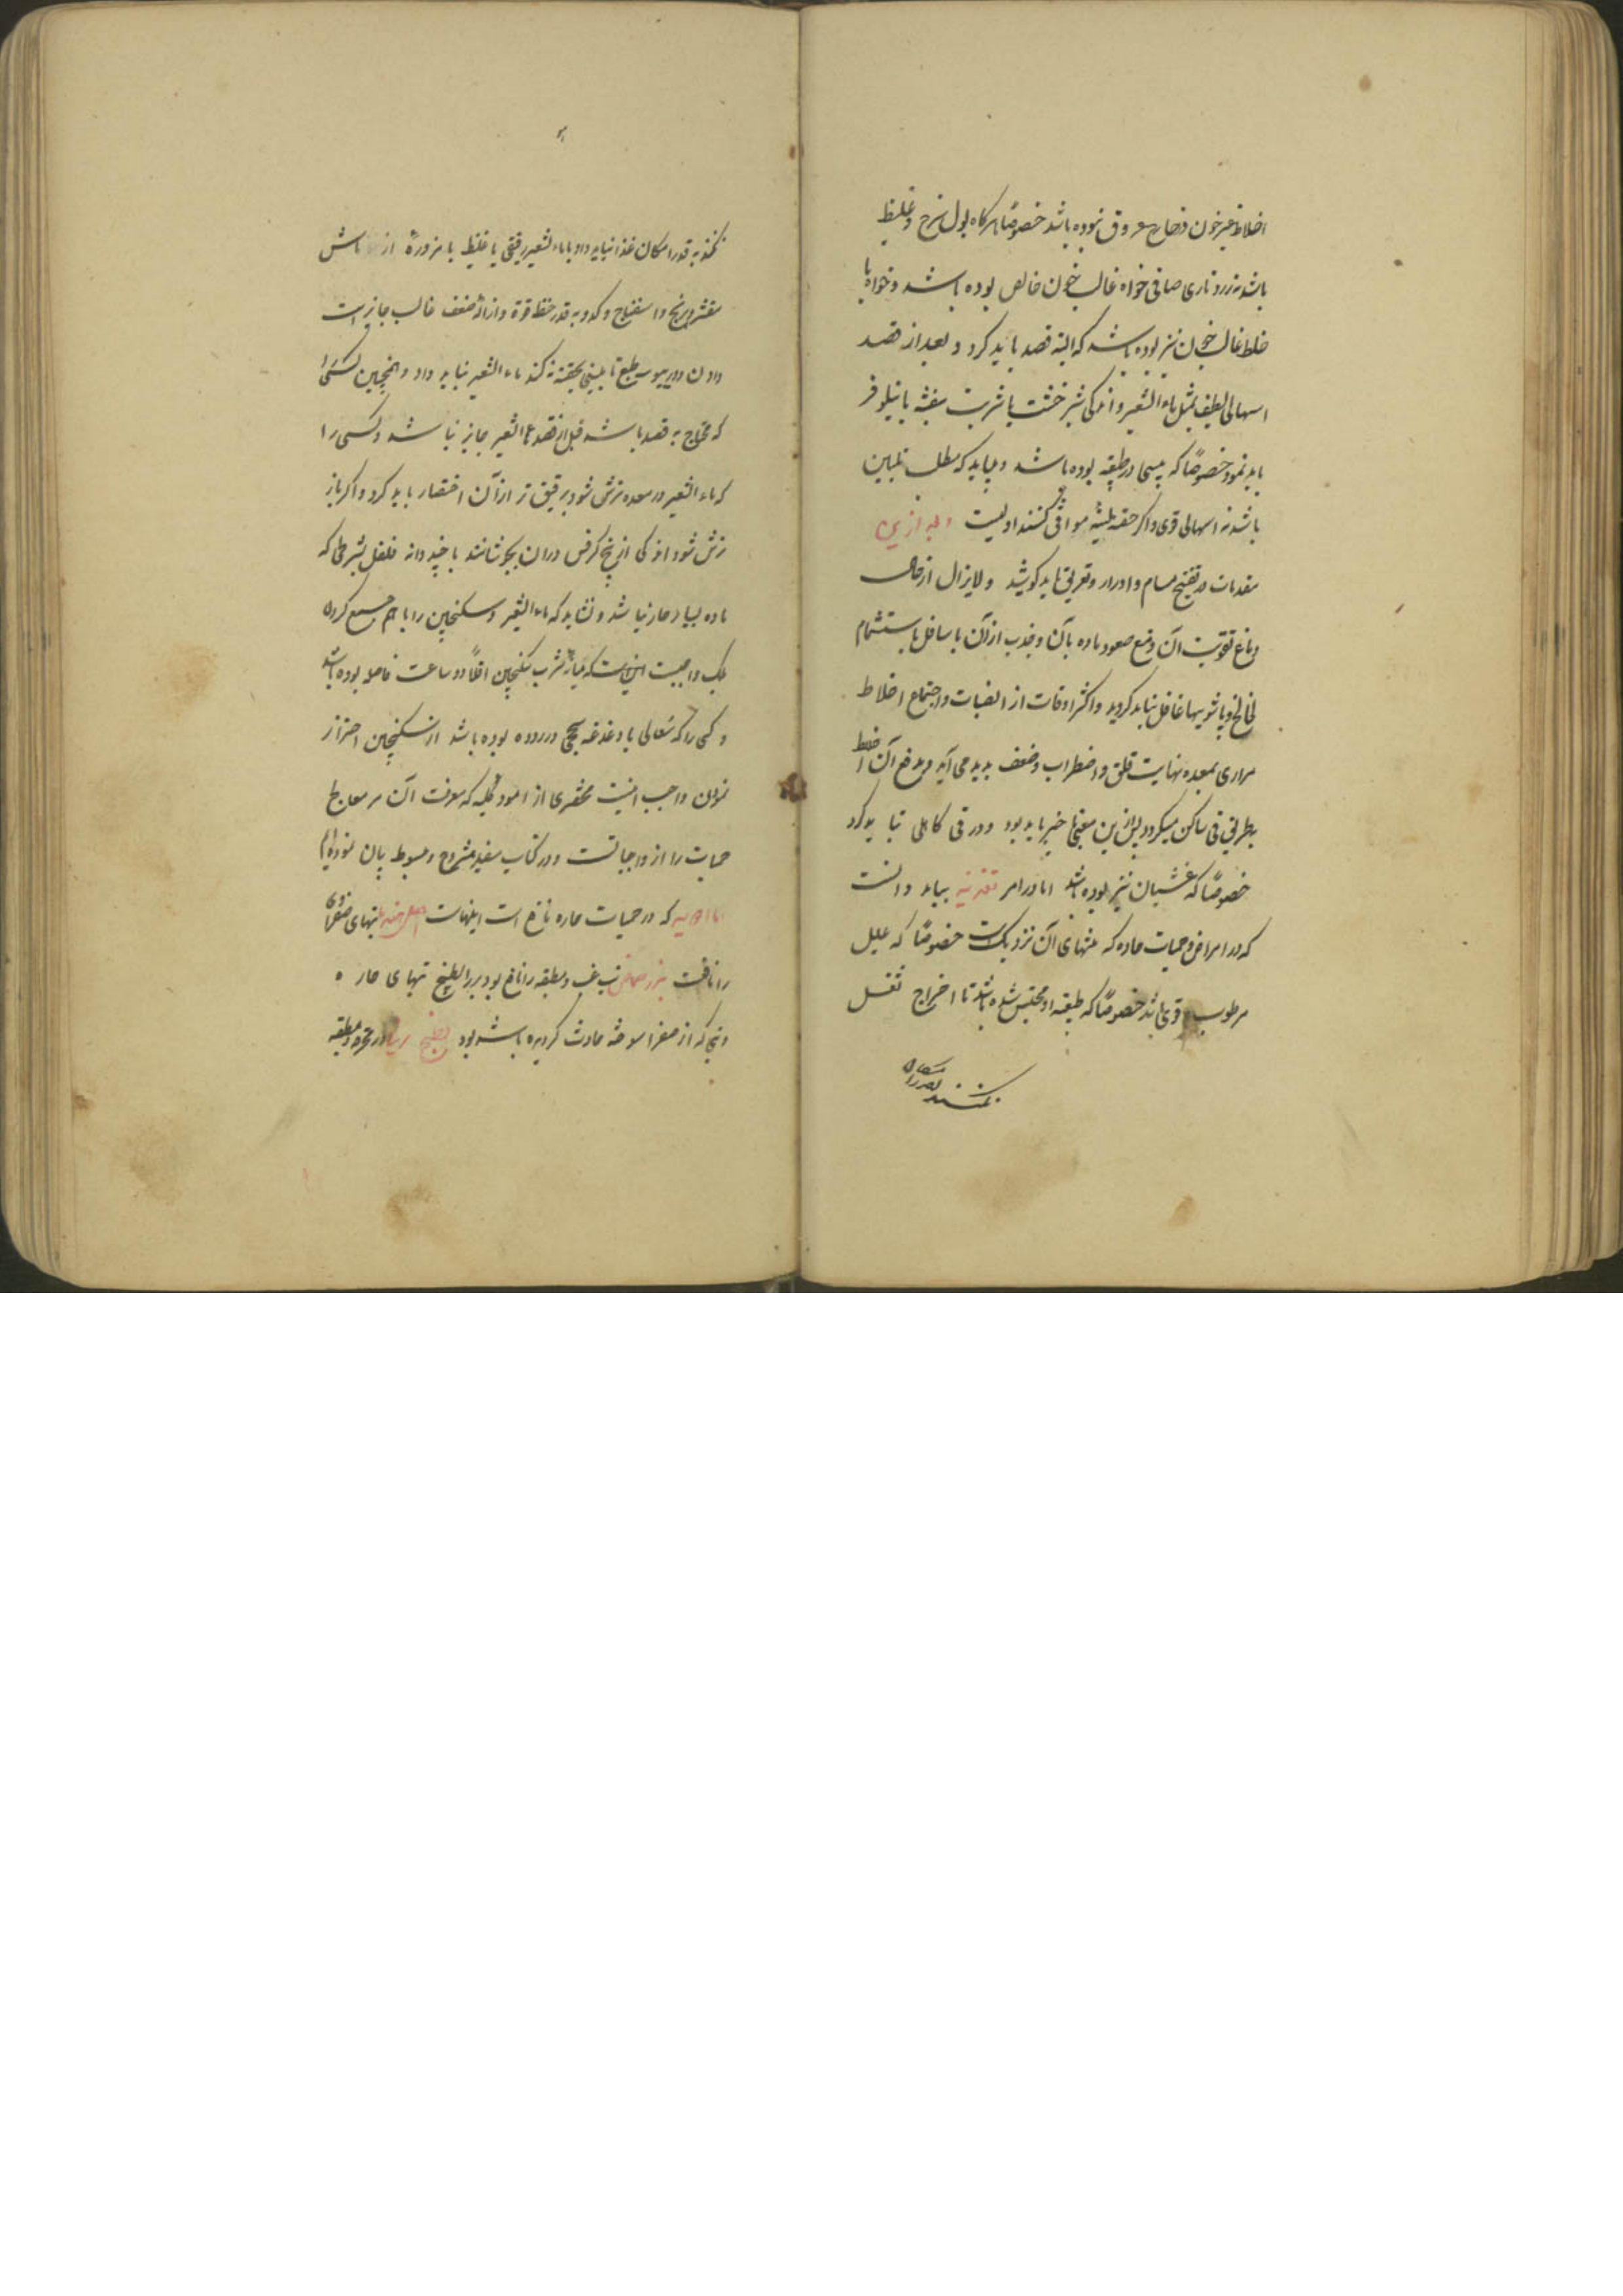 اخلاط غیر خون در خارج عروق نبوده باشد خصوصًا هرکاه بول سرخ و غلیظ
باشد نه زرد ناری صافی خواه غالب خون خالص بوده باشد و خواه با
خلط غالب خون نیز بوده باشد که البته فصد باید کرد و بعد از فصد
اسهالی لطیف بمثل ماء الشعیر و اندکی شیرخشت یا شربت بنفشه یا نیلوفر
باید نمود خصوصًا که یبسی در طبیعه بوده باشد و میباید که مطلب تلیین
باشد نه اسهالی قوی و اکر حقنه لینه موافق کنند اولیست و بعد از این
مقدمات در تفتیح مسام و ادرار و تعریق باید کوشید و لایزال از حال
دماغ تقویت آن و منع صعود ماده بآن و جذب از آن باسافل باستشمام
لخالخ و پاشویها غافل نباید کردید و اکثر اوقات از انصباب و اجتماع اخلاط
مراری بمعده نهایت قلق و اضطراب و ضعف پدید می آید و بدفع آن اخلاط
بطریق قی ساکن میکردد پس ازین معنی با خبر باید بود و در قی کاهلی نباید کرد
خصوصًا که غشیان نیز بوده باشد اما در امر تغذیه بباید دانست
که در امراض و حمیات حاده که منتهای آن نزدیکست خصوصًا که علیل
مرطوب و قوی باشد خصوصًا که طبیعه او محتبس شده باشد تا اخراج ثفل
نکنند بقدر امکان
نکنند بقدر امکان غذا نباید داد یا ماء الشعیر رقیق یا غلیظ یا مزوره از ماش
مقشر و برنج و اسفناج و کدو بقدر حفظ قوة و ازالهٔ ضعف غالب جایز است
دادن و در یبوست طبع تا تلیینی بحقنه نکنند ماء الشعیر نباید داد و همچنین کسی را
که محتاج به فصد باشد قبل از فصد ماء الشعیر جایز نباشد و کسی را
که ماء الشعیر در معده ترش شود برقیق تر از آن اختصار باید کرد و اکر باز
ترش شود اندکی از بیخ کرفس در آن بجوشانند با چند دانه فلفل بشرطی که
ماده بسیار حار نباشد و نشاید که ماء الشعیر و سکنجبین را با هم جمع کرد
بلک واجبست اینست که میانه شرب سکنجبین اقلًا دو ساعت فاصله بوده باشد
و کسی را که سعالی یا دغدغه سحجی در روده بوده باشد از سکنجبین احتراز
نمودن واجب اینست مختصری از امور کلیه که معرفت آن مر معالج
حمیات را از واجباتست و در کتاب مفید مشروح و مبسوط بیان نموده ایم
اما ادویه که در حمیات حاره نافع است اینهاست تبهای صفراوی
را نافعست بزر حماض تب غب و مطبقه را نافع بود تبهای حاره
و تبی که از صفراء سوخته حادث کردیده باشد بود